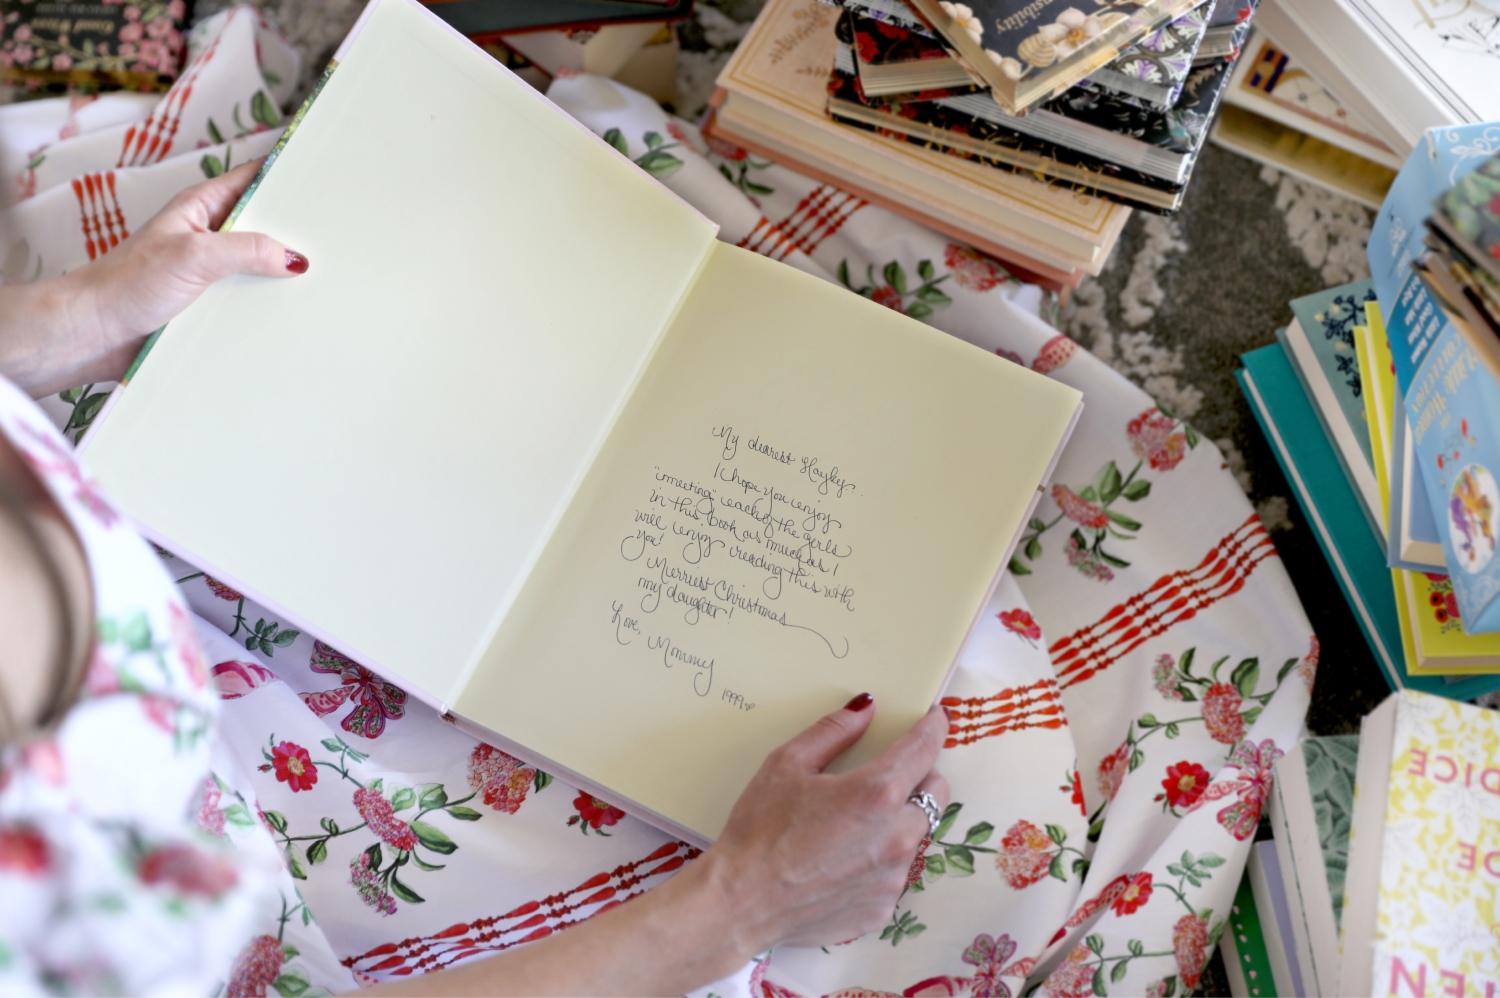 My dearest Hayley,
I hope you enjoy
"meeting" each of the girls
in this book as much as I
will enjoy reading this with
you!
Merriest Christmas
my daughter!
Love, Mommy
1999
sibility
COLLECTION
DICE
DE
EN